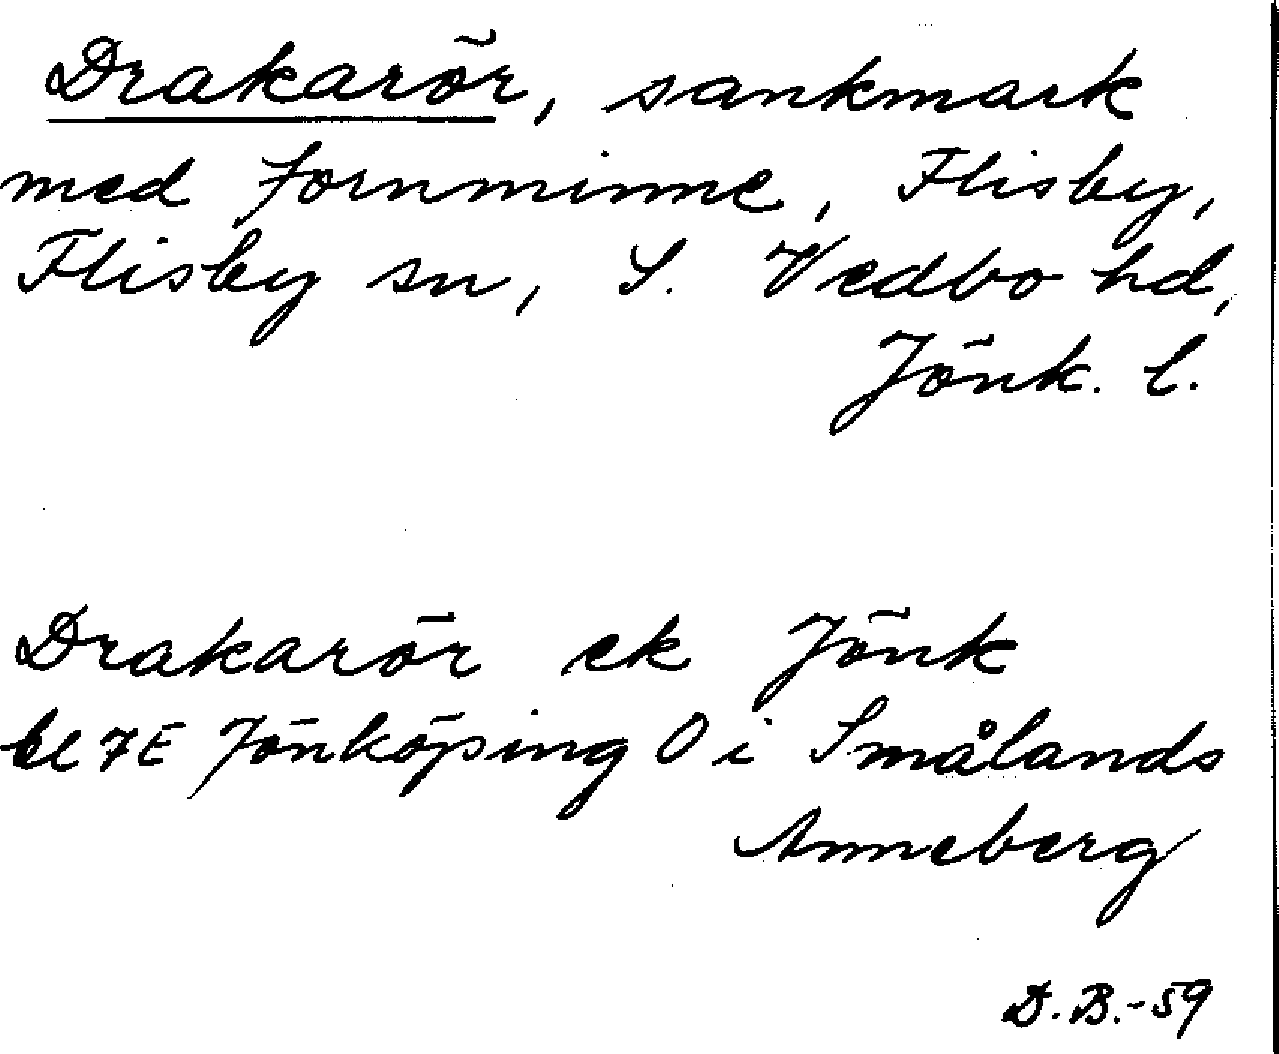 Drakarör, sankmark
med fornminne, Flisby,
Flisby sn, S. Vedbo hd,
Jönk. l.
Drakarör ek Jönk
bl 7E Jönköping O i Smålands
Anneberg
D.B.-59